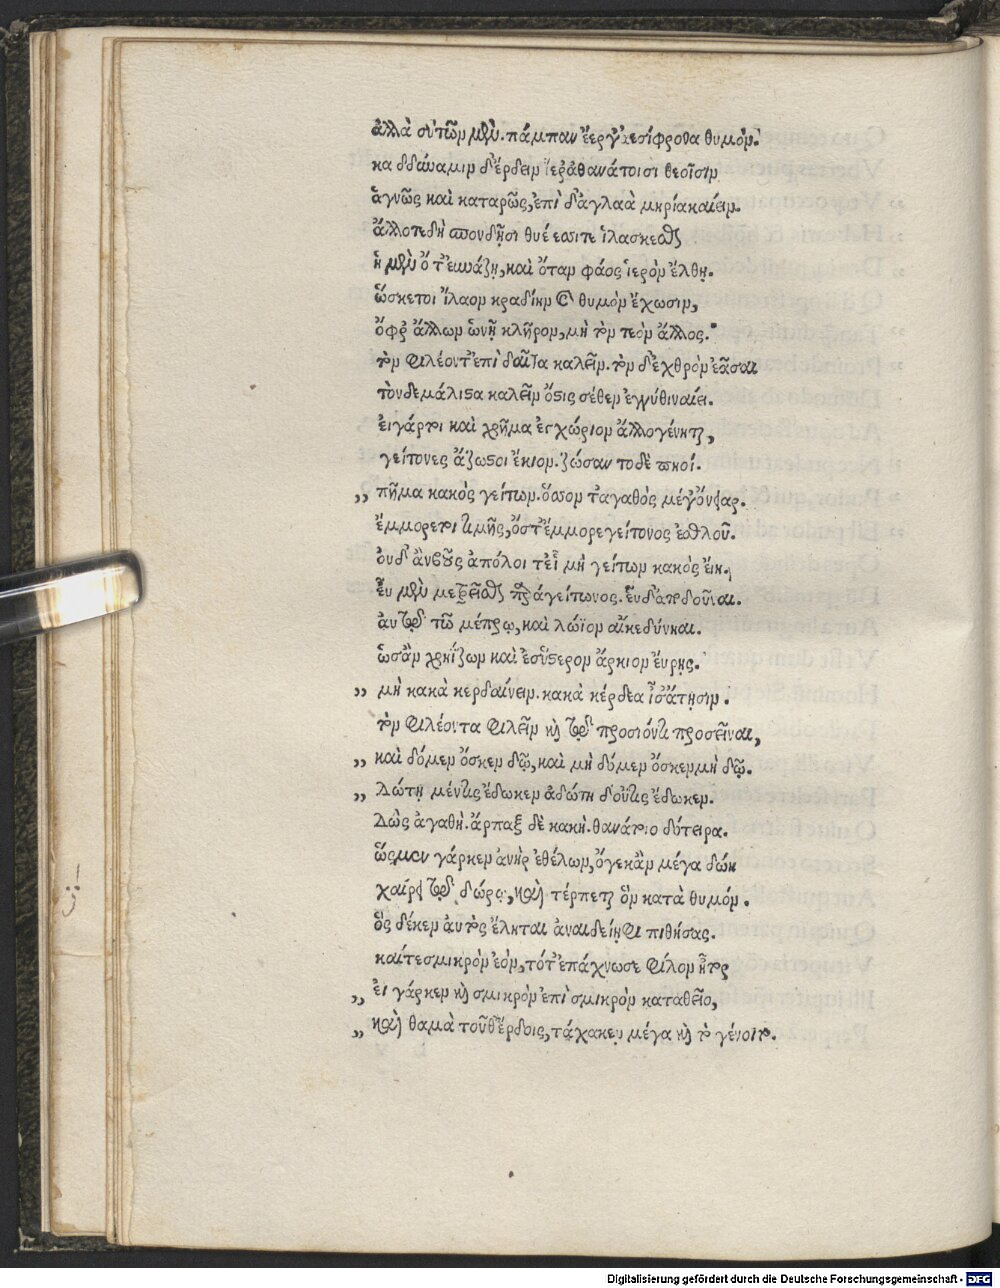 ἀλλὰ σὺ τῶν μὲν πάμπαν ἔεργ' ἀεσίφρονα θυμόν.
καδδύναμιν δ' ἔρδειν ἱερ' ἀθανάτοισι θεοῖσιν
ἁγνῶς καὶ καταρῶς, ἐπὶ δ' ἀγλαὰ μηρία καίειν.
ἄλλοτε δὴ σπονδῇσι θυέεσσί τε ἱλάσκεσθαι
ἠ μὲν ὅτ' εὐνάζῃ, καὶ ὅταν φάος ἱερὸν ἔλθῃ.
ὥς κε τοι ἵλαον κραδίην καὶ θυμὸν ἔχωσιν,
ὄφρ' ἄλλων ὠνῇ κλῆρον, μὴ τὸν τεὸν ἄλλος.
τὸν φιλέοντ' ἐπὶ δαῖτα καλεῖν. τὸν δ' ἐχθρὸν ἐᾶσαι
τὸν δε μάλιστα καλεῖν ὅστις σέθεν ἐγγύθι ναίει.
εἰ γάρ τι καὶ χρῆμα ἐγχώριον ἄλλο γένηται,
γείτονες ἄζωστοι ἔκιον. ζώσαντο δὲ πηοί.
„ πῆμα κακὸς γείτων. ὅσσον τ' ἀγαθὸς μέγ' ὄνειαρ.
ἔμμορέ τι τιμῆς, ὅστ' ἔμμορε γείτονος ἐσθλοῦ.
οὐδ' ἂν βοῦς ἀπόλοιτ' εἰ μὴ γείτων κακὸς εἴη.
εὖ μὲν μετρεῖσθαι παρὰ γείτονος. εὖ δ' ἀποδοῦναι.
αὐτῷ τῷ μέτρῳ, καὶ λώϊον αἴ κε δύνηαι.
ὡς ἂν χρηΐζων καὶ ἐς ὕστερον ἄρκιον εὕρῃς.
„ μὴ κακὰ κερδαίνειν. κακὰ κέρδεα ἶσ' ἄτῃσιν.
τὸν φιλέοντα φιλεῖν καὶ τῷ προσιόντι προσεῖναι,
„ καὶ δόμεν ὅς κεν δῷ, καὶ μὴ δόμεν ὅς κεν μὴ δῷ.
„ Δώτῃ μέν τις ἔδωκεν ἀδώτῃ δ' οὔτις ἔδωκεν.
Δὼς ἀγαθὴ. ἅρπαξ δὲ κακὴ. θανάτοιο δότειρα.
ὣς μεν γάρ κεν ἀνὴρ ἐθέλων, ὅγε κἂν μέγα δώη
χαίρει τῷ δώρῳ, καὶ τέρπεται ὃν κατὰ θυμόν.
ὃς δέ κεν αὐτὸς ἕληται ἀναιδείηφι πιθήσας.
καί τε σμικρὸν ἐὸν, τότ' ἐπάχνωσε φίλον ἦτορ
„ εἰ γάρ κεν καὶ σμικρὸν ἐπὶ σμικρὸν καταθεῖο,
„ καὶ θαμὰ τοῦθ' ἔρδοις, τάχα κεν μέγα καὶ τὸ γένοιτο.
Digitalisierung gefördert durch die Deutsche Forschungsgemeinschaft - DFG